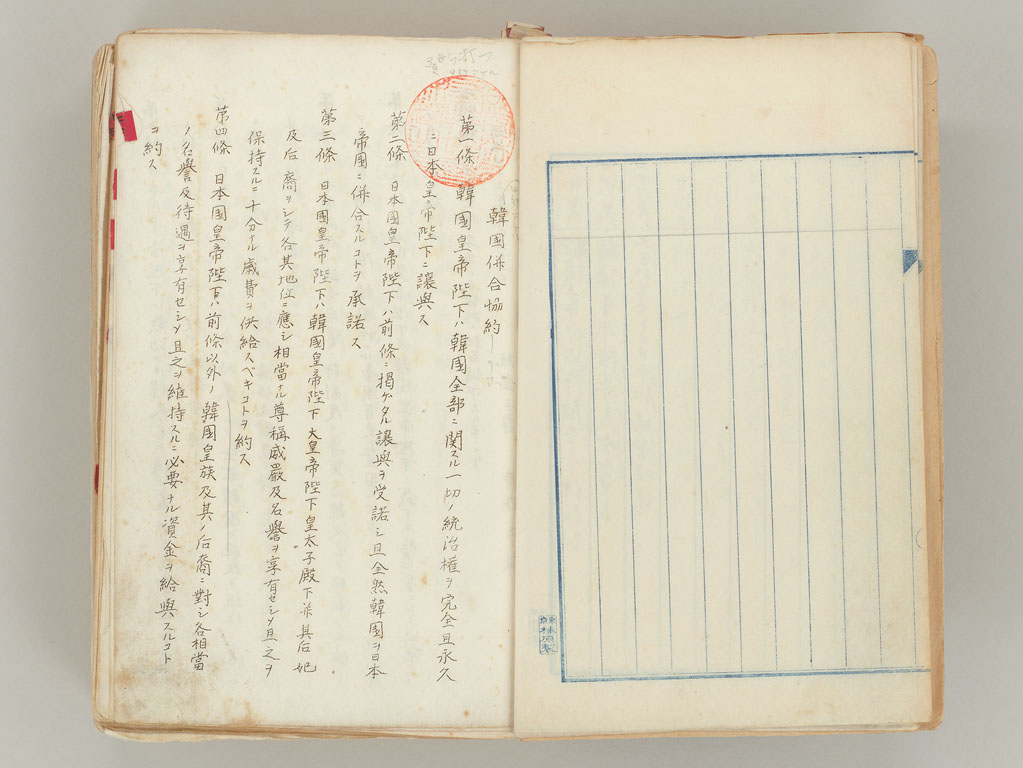 韓國併合協約
第一條 韓國皇帝陛下ハ韓國全部ニ関スル一切ノ統治權ヲ完全且永久
ニ日本皇帝陛下ニ讓與ス
第二條 日本國皇帝陛下ハ前條ニ掲ケタル讓與ヲ受諾シ且全然韓國ヲ日本
帝國ニ併合スルコトヲ承諾ス
第三條 日本國皇帝陛下ハ韓國皇帝陛下大皇帝陛下皇太子殿下並其后妃
及后裔ヲシテ各其地位ニ應シ相當ナル尊稱威嚴及名譽ヲ享有セシメ且之ヲ
保持スルニ十分ナル歳費ヲ供給スベキコトヲ約ス
第四條 日本國皇帝陛下ハ前條以外ノ韓國皇族及其ノ后裔ニ對シ各相當
ノ名譽及待遇ヲ享有セシメ且之ヲ維持スルニ必要ナル資金ヲ給與スルコト
ヲ約ス